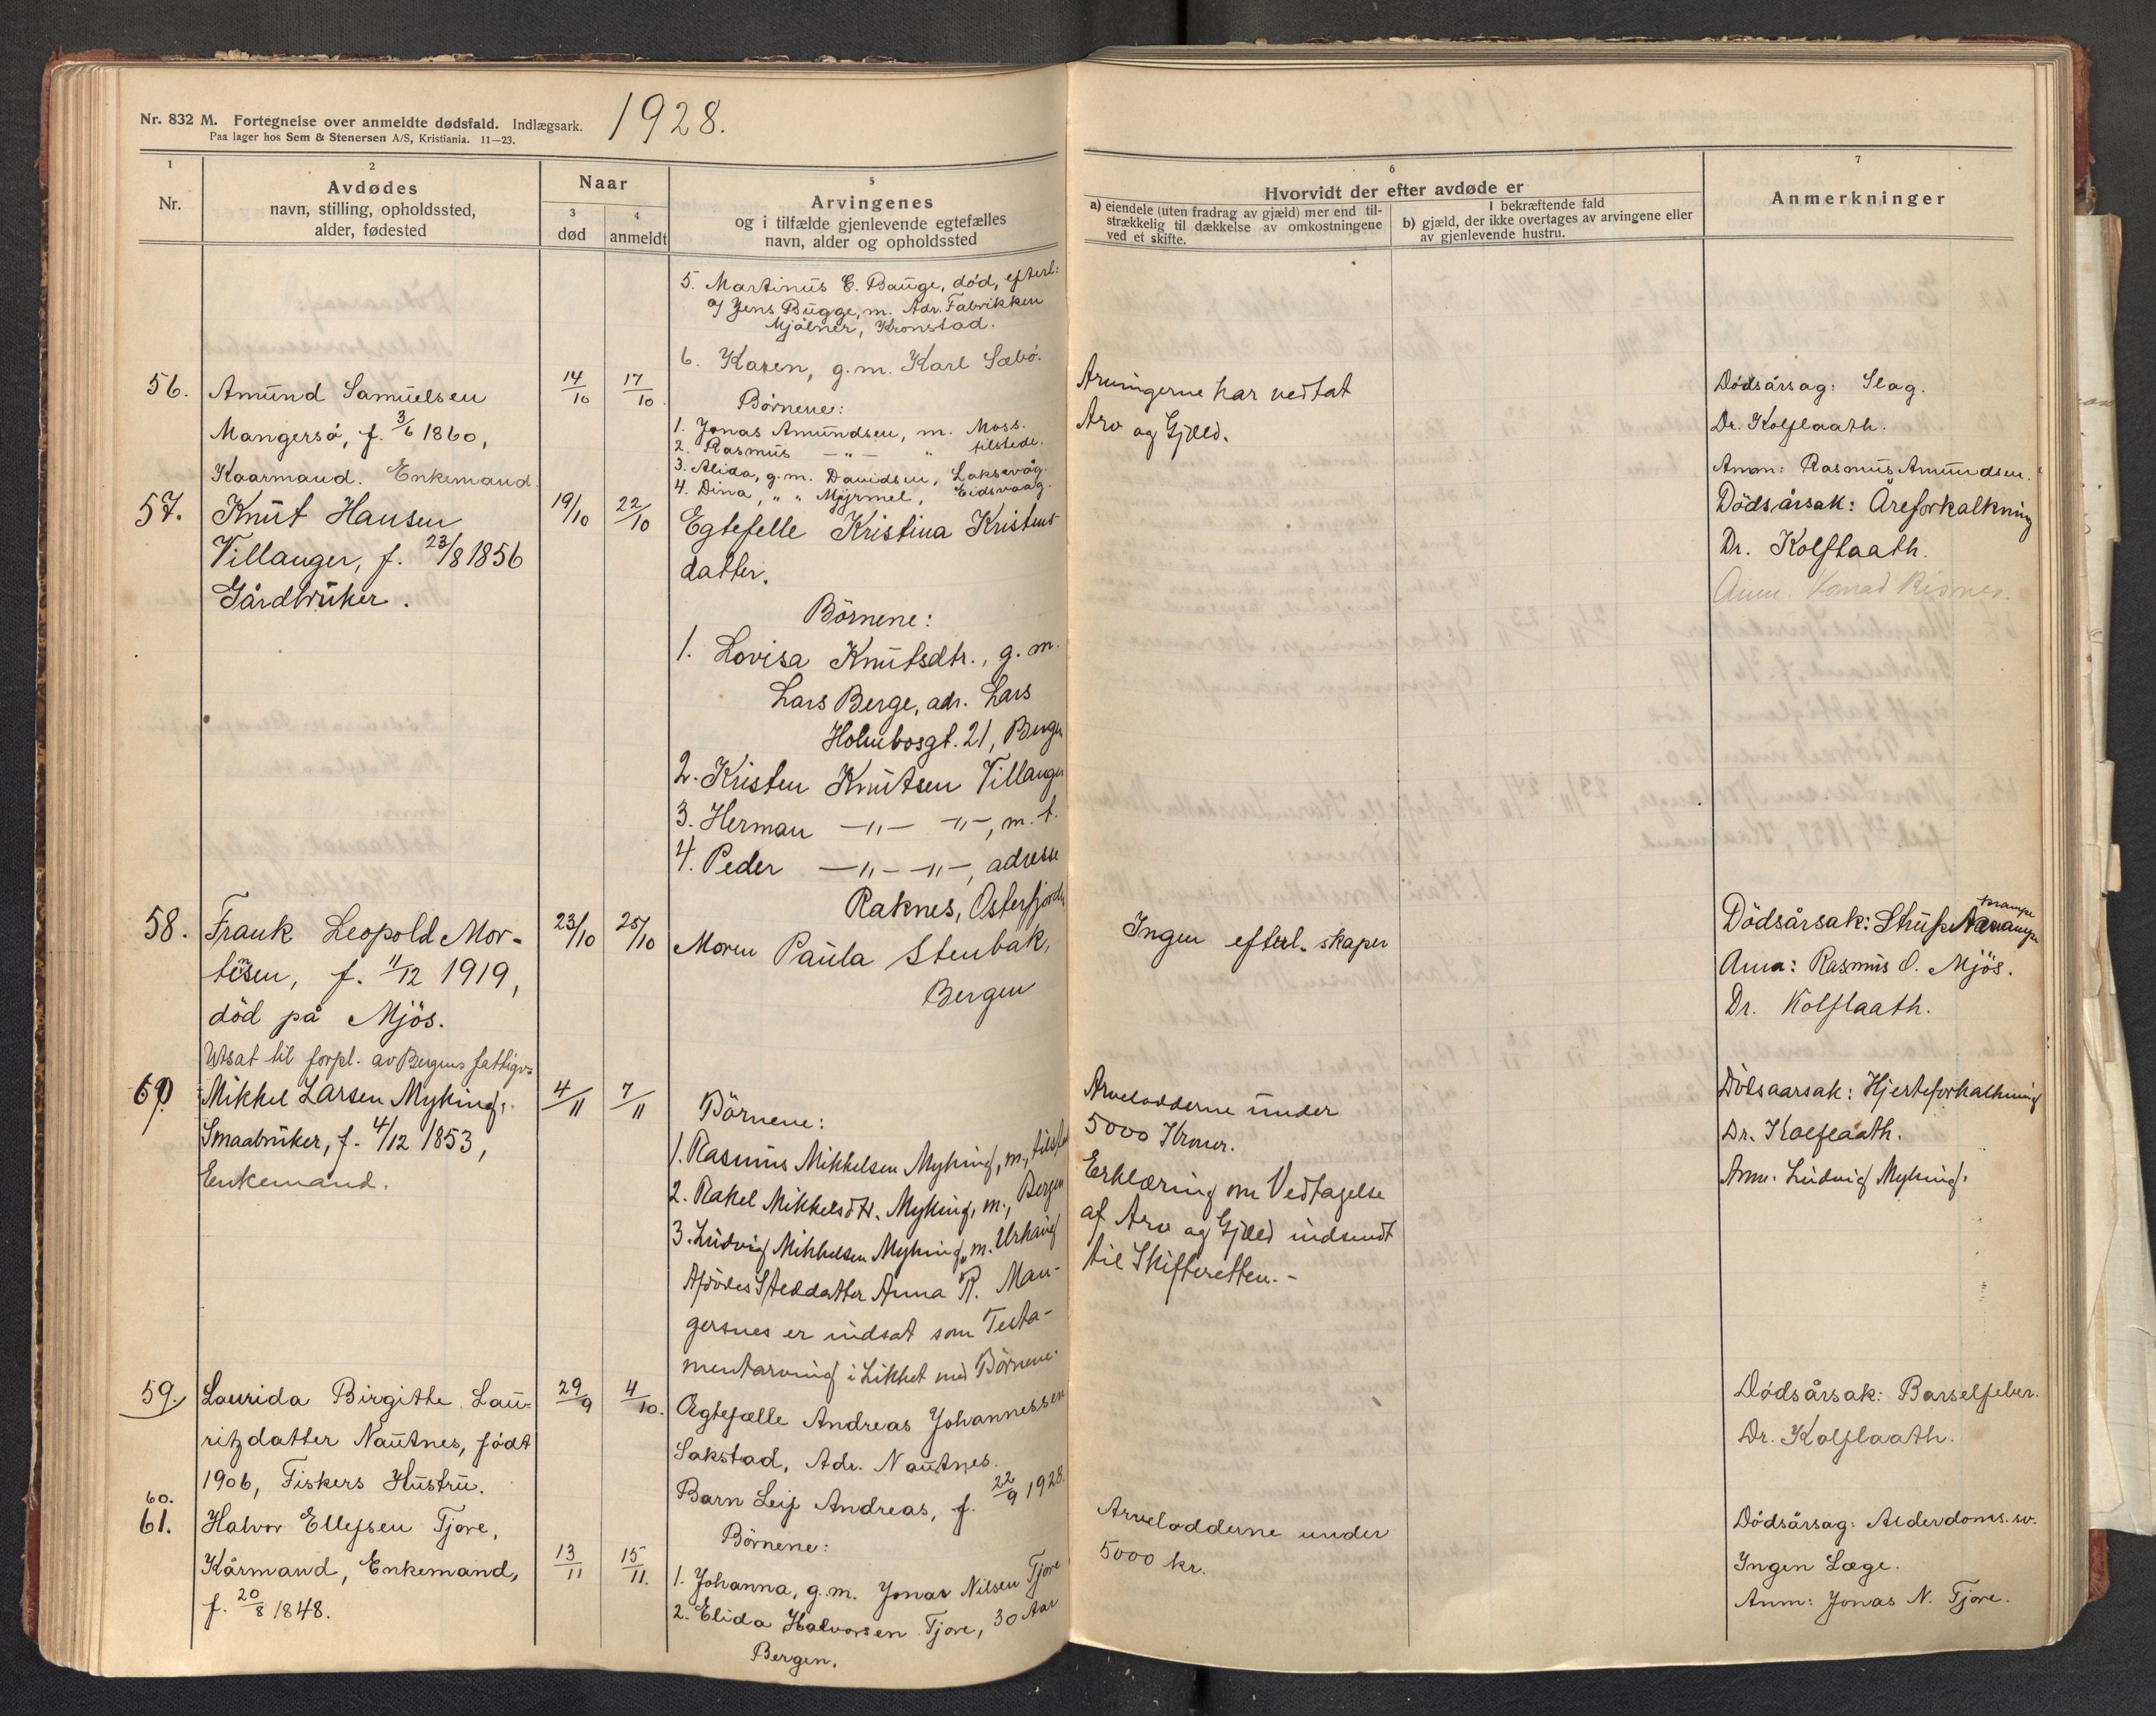 Nr. 832 M. Fortegnelse over anmeldte dødsfald. Indlægsark.
Paa lager hos Sem & Stenersen A/S, Kristiania. 11—23.
1928.
1
Nr.
2
Avdødes
navn, stilling, opholdssted,
alder, fødested
Naar
3
død
4
anmeldt
5
Arvingenes
og i tilfælde gjenlevende egtefælles
navn, alder og opholdssted
6
Hvorvidt der efter avdøde er
a) eiendele (uten fradrag av gjæld) mer end til-
strækkelig til dækkelse av omkostningene
ved et skifte.
I bekræftende fald
b) gjæld, der ikke overtages av arvingene eller
av gjenlevende hustru.
7
Anmerkninger
5. Martinus E. Bauge, død, efterl:
a/ Jens Bugge, m. Adr. Fabrikken
Mjølner, Kronstad.
6. Karen, g.m. Karl Sæbø.
56.
Amund Samuelsen
Mangersø, f. 3/6 1860,
Kaarmand. Enkemand.
14/10
17/10
Børnene:
1. Jonas Amundsen, m. Moss.
2. Rasmus —"— " tilstede.
3. Alida, g.m. Davidsen, Laksevåg.
4. Dina, " " Myrmel, Eidsvaag.
Arvingerne har vedtat
Arv og Gjæld.
Dødsårsag: Slag.
Dr. Kolflaath.
Anm: Rasmus Amundsen.
57.
Knut Hansen
Villanger, f. 23/8 1856
Gårdbruker.
19/10
22/10
Egtefelle Kristina Kristens-
datter.
Børnene:
1. Lovisa Knutsdtr., g.m.
Lars Berge, adr. Lars
Holmbosgt. 21, Bergen
2. Kristen Knutsen Villanger
3. Herman —"— —"—, m. t.
4. Peder —"— —"—, adresse
Raknes, Osterfjorden
Dödsårsak: Åreforkalkning
Dr. Kolflaath.
Anm. Konrad Risnes.
58.
Frank Leopold Mor-
tensen, f. 11/12 1919,
död på Mjös.
Utsat til forpl. av Bergens fattigv=
23/10
25/10
Moren Paula Stenbak,
Bergen
Ingen efterl. skaper
krampe
Dödsårsak: Strupe
Anm: Rasmus O. Mjös.
Dr. Kolflaath.
60
Mikkel Larsen Myking,
Smaabruker, f. 4/12 1853,
Enkemand.
4/11
7/11
Börnene:
1. Rasmus Mikkelsen Myking, m., tilsted
2. Rakel Mikkelsdtr. Myking, m., Bergen
3. Ludvig Mikkelsen Myking, m. Urhaug
Afdødes Steddatter Anna R. Man-
gersnes er indsat som Testa-
mentarving i Likhet med Börnene.
Arvelodderne under
5000 Kroner.
Erklæring om Vedtagelse
af Arv og Gjæld indsendt
til Skifteretten.-
Dödsaarsak: Hjerteforkalkning
Dr. Kolflaath.
Anm. Ludvig Myking.
59.
Laurida Birgithe Lau-
ritzdatter Nautnes, født
1906, Fiskers Hustru.
29/9
4/10.
Ægtefælle Andreas Johannessen
Sakstad, Adr. Nautnes.
Barn Leif Andreas, f. 22/9 1928.
Dødsårsak: Barselfeber.
Dr. Kolflaath.
60.
61.
Halvor Ellefsen Tjore,
Kårmand, Enkemand,
f. 20/8 1848.
13/11
15/11.
Børnene:
1. Johanna, g.m. Jonas Nilsen Tjore
2. Elida Halvorsen Tjore, 30 Aar
Bergen.
Arvelodderne under
5000 kr.
Dødsårsag: Alderdoms.sv.
Ingen Læge.
Anm: Jonas N. Tjore.